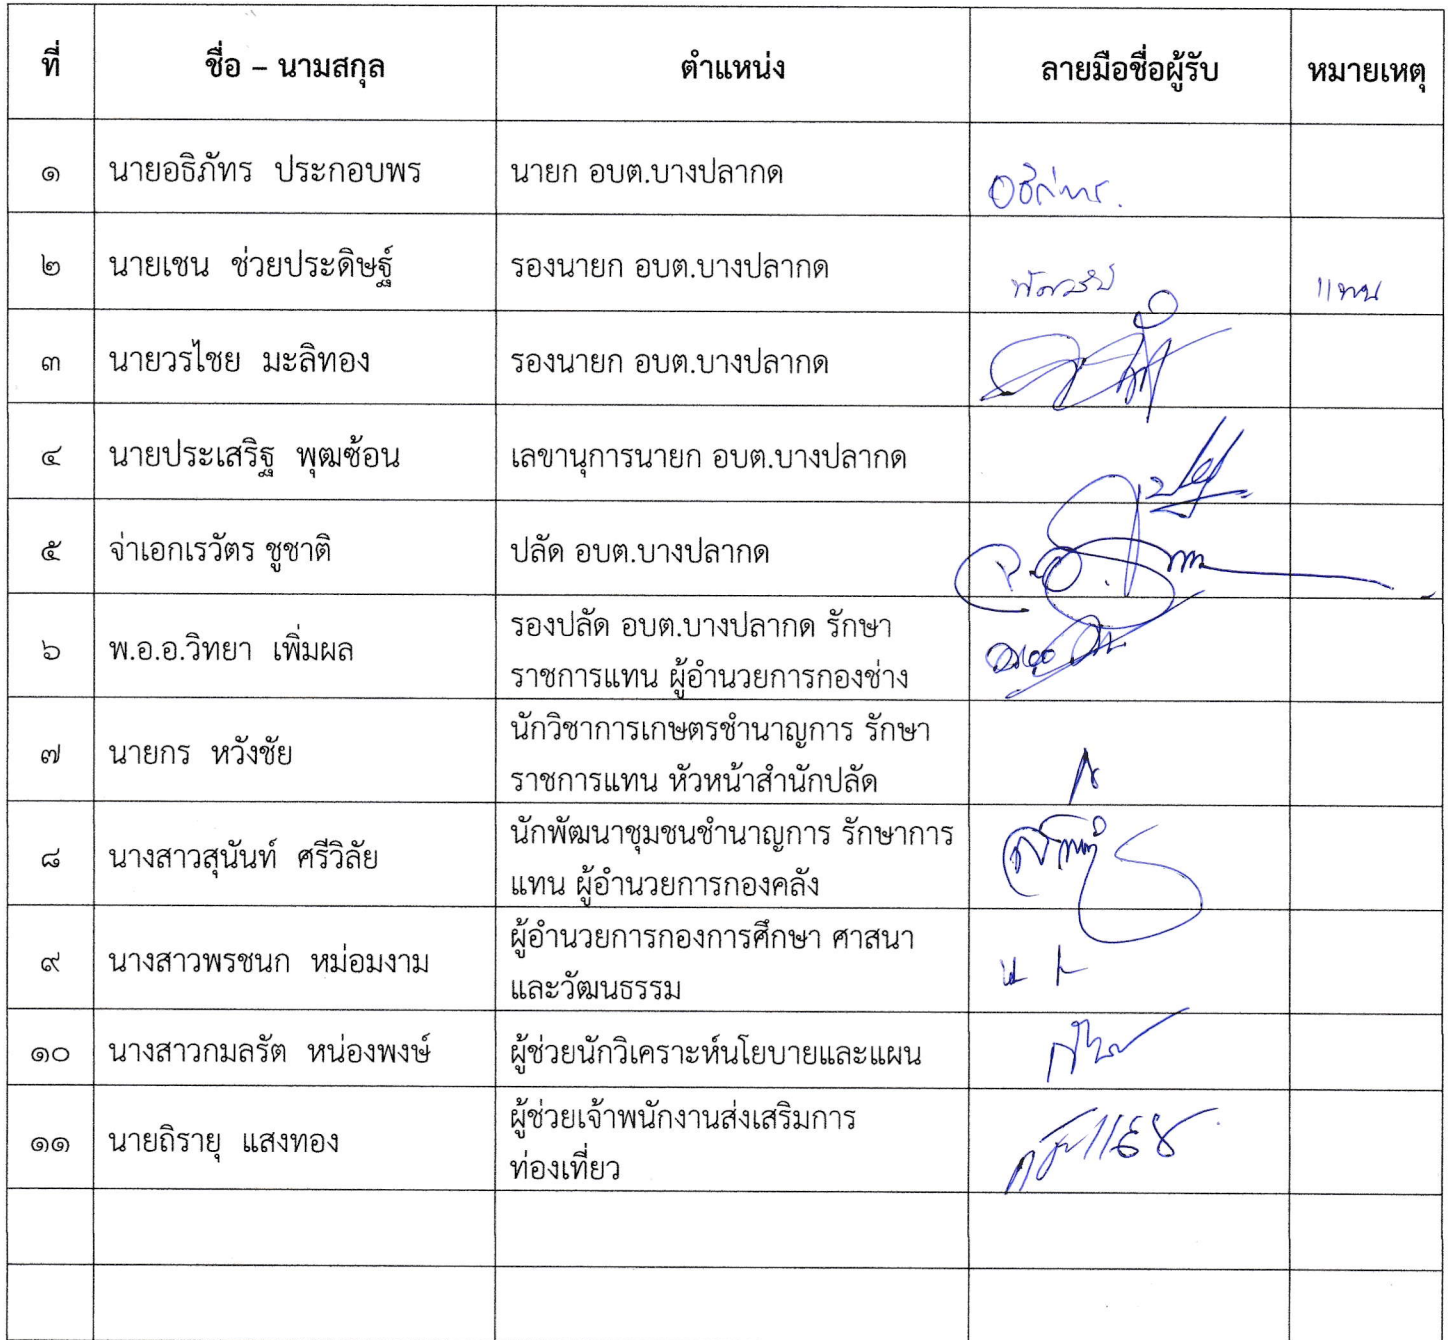 ที่ ชื่อ – นามสกุล ตำแหน่ง ลายมือชื่อผู้รับ หมายเหตุ
๑ นายอธิภัทร ประกอบพร นายก อบต.บางปลากด อธิภัทร.
๒ นายเชน ช่วยประดิษฐ์ รองนายก อบต.บางปลากด แทน
๓ นายวรไชย มะลิทอง รองนายก อบต.บางปลากด
๔ นายประเสริฐ พุฒซ้อน เลขานุการนายก อบต.บางปลากด
๕ จ่าเอกเรวัตร ชูชาติ ปลัด อบต.บางปลากด
๖ พ.อ.อ.วิทยา เพิ่มผล รองปลัด อบต.บางปลากด รักษา
ราชการแทน ผู้อำนวยการกองช่าง
๗ นายกร หวังชัย นักวิชาการเกษตรชำนาญการ รักษา
ราชการแทน หัวหน้าสำนักปลัด
๘ นางสาวสุนันท์ ศรีวิลัย นักพัฒนาชุมชนชำนาญการ รักษาการ
แทน ผู้อำนวยการกองคลัง
๙ นางสาวพรชนก หม่อมงาม ผู้อำนวยการกองการศึกษา ศาสนา
และวัฒนธรรม
๑๐ นางสาวกมลรัต หน่องพงษ์ ผู้ช่วยนักวิเคราะห์นโยบายและแผน
๑๑ นายถิรายุ แสงทอง ผู้ช่วยเจ้าพนักงานส่งเสริมการ
ท่องเที่ยว